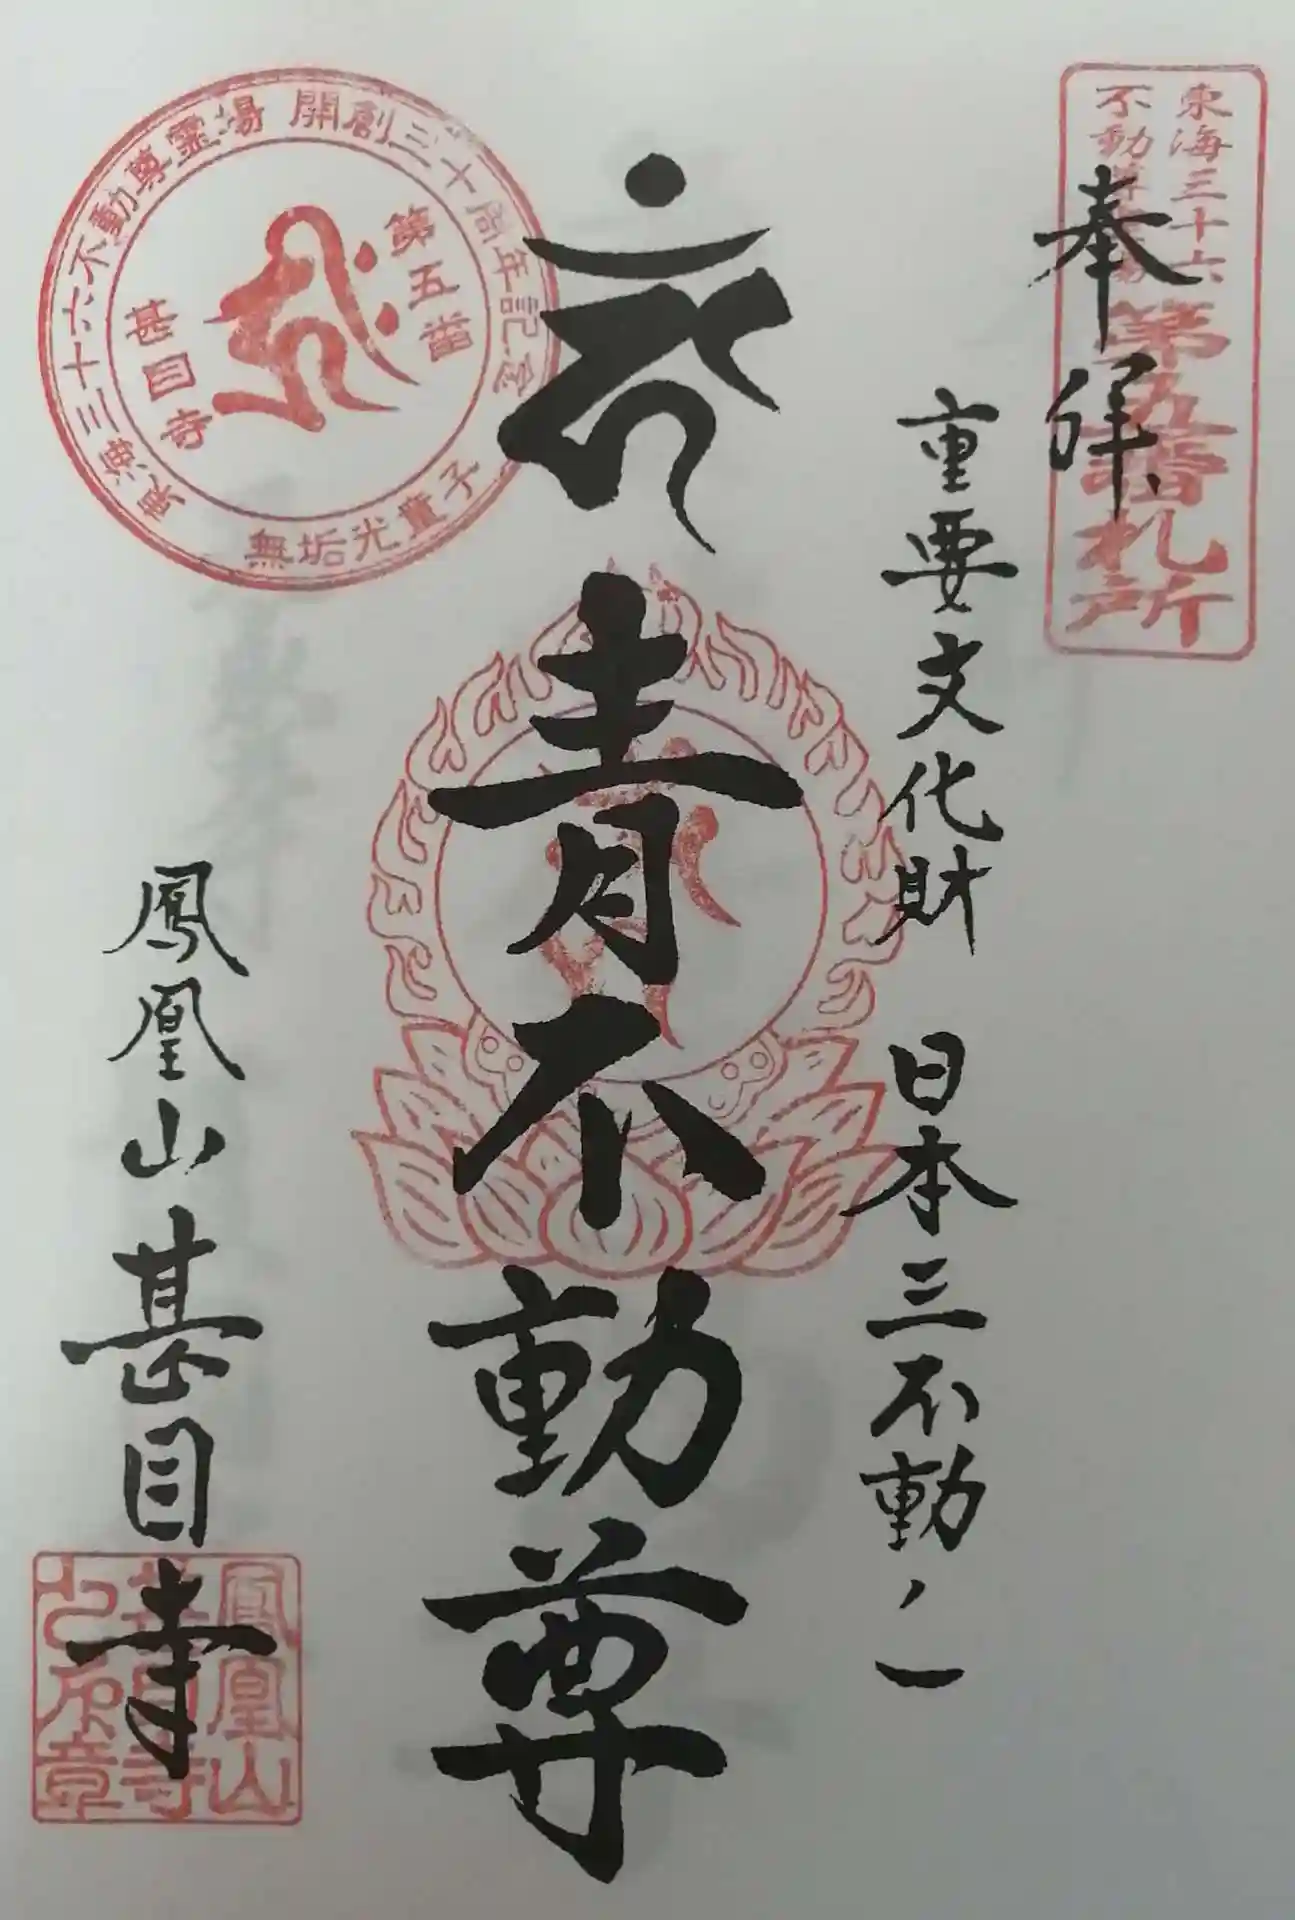 東海三十六
不動尊霊場
第五番札所
奉拝
重要文化財 日本三不動ノ一
青不動尊
東海三十六不動尊霊場 開創三十周年記念
第五番
甚目寺
無垢光童子
鳳凰山甚目寺
鳳凰山
甚目寺
之印章